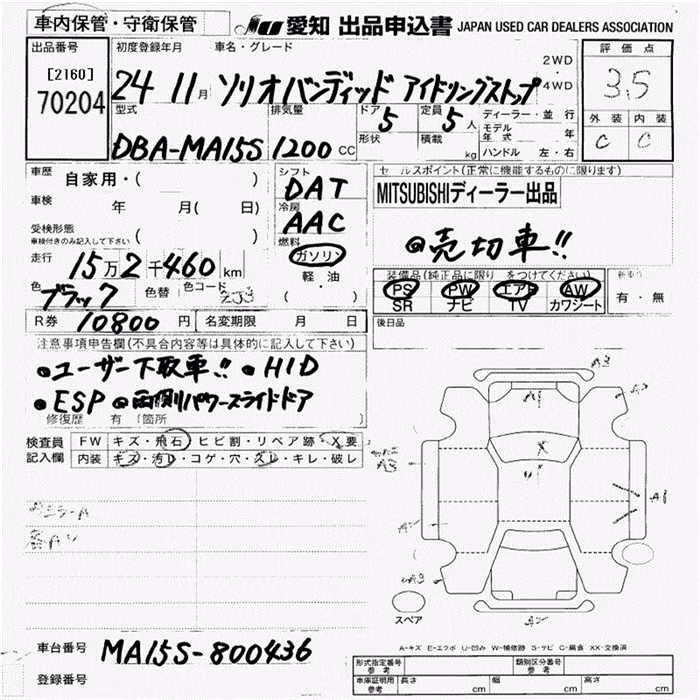 車内保管・守衛保管
愛知 出品申込書 JAPAN USED CAR DEALERS ASSOCIATION
出品番号
[2160]
70204
初度登録年月 車名・グレード
24 11月 ソリオバンディッド アイドリングストップ
2WD
4WD
評価点
3.5
外装 内装
C C
型式 排気量 ドア 定員
DBA-MA15S 1200cc 5 5人
形状 積載 kg
ディーラー・並行
モデル年式 年
ハンドル 左・右
車歴 自家用・( )
車検 年 月(日)
受検形態 ( )
車検付きのみ記入して下さい
走行 15万2千460km
色 ブラック 色替 色コード ZJ3
シフト DAT
冷房 AAC
燃料
ガソリン
軽・油
( )
セールスポイント(正常に機能するものに限ります)
MITSUBISHIディーラー出品
◎売切車!!
装備品(純正品に限り をつけてください)
PS PW エアB AW
SR ナビ TV カワシート
有・無
後日品
R券 10800円 名変期限 月 日
注意事項申告欄(不具合内容等は具体的に記入して下さい)
●ユーザー下取車!! ●HID
●ESP ◎両側パワースライドドア
修復歴 有 (箇所
検査員記入欄
FW キズ・飛石・ヒビ割・リペア跡・X要
内装 キズ・汚レ・コゲ・穴・スレ・キレ・破レ
A3
A1
X
U1
A3
A1
スペア
A-キズ E-エクボ U-凹み W-補修跡 S-サビ C-腐食 XX-交換済
車台番号 MA15S-800436
登録番号
形式指定番号 参考 類別区分番号 参考
車庫証明用 参考 長さ cm 幅 cm 高さ cm